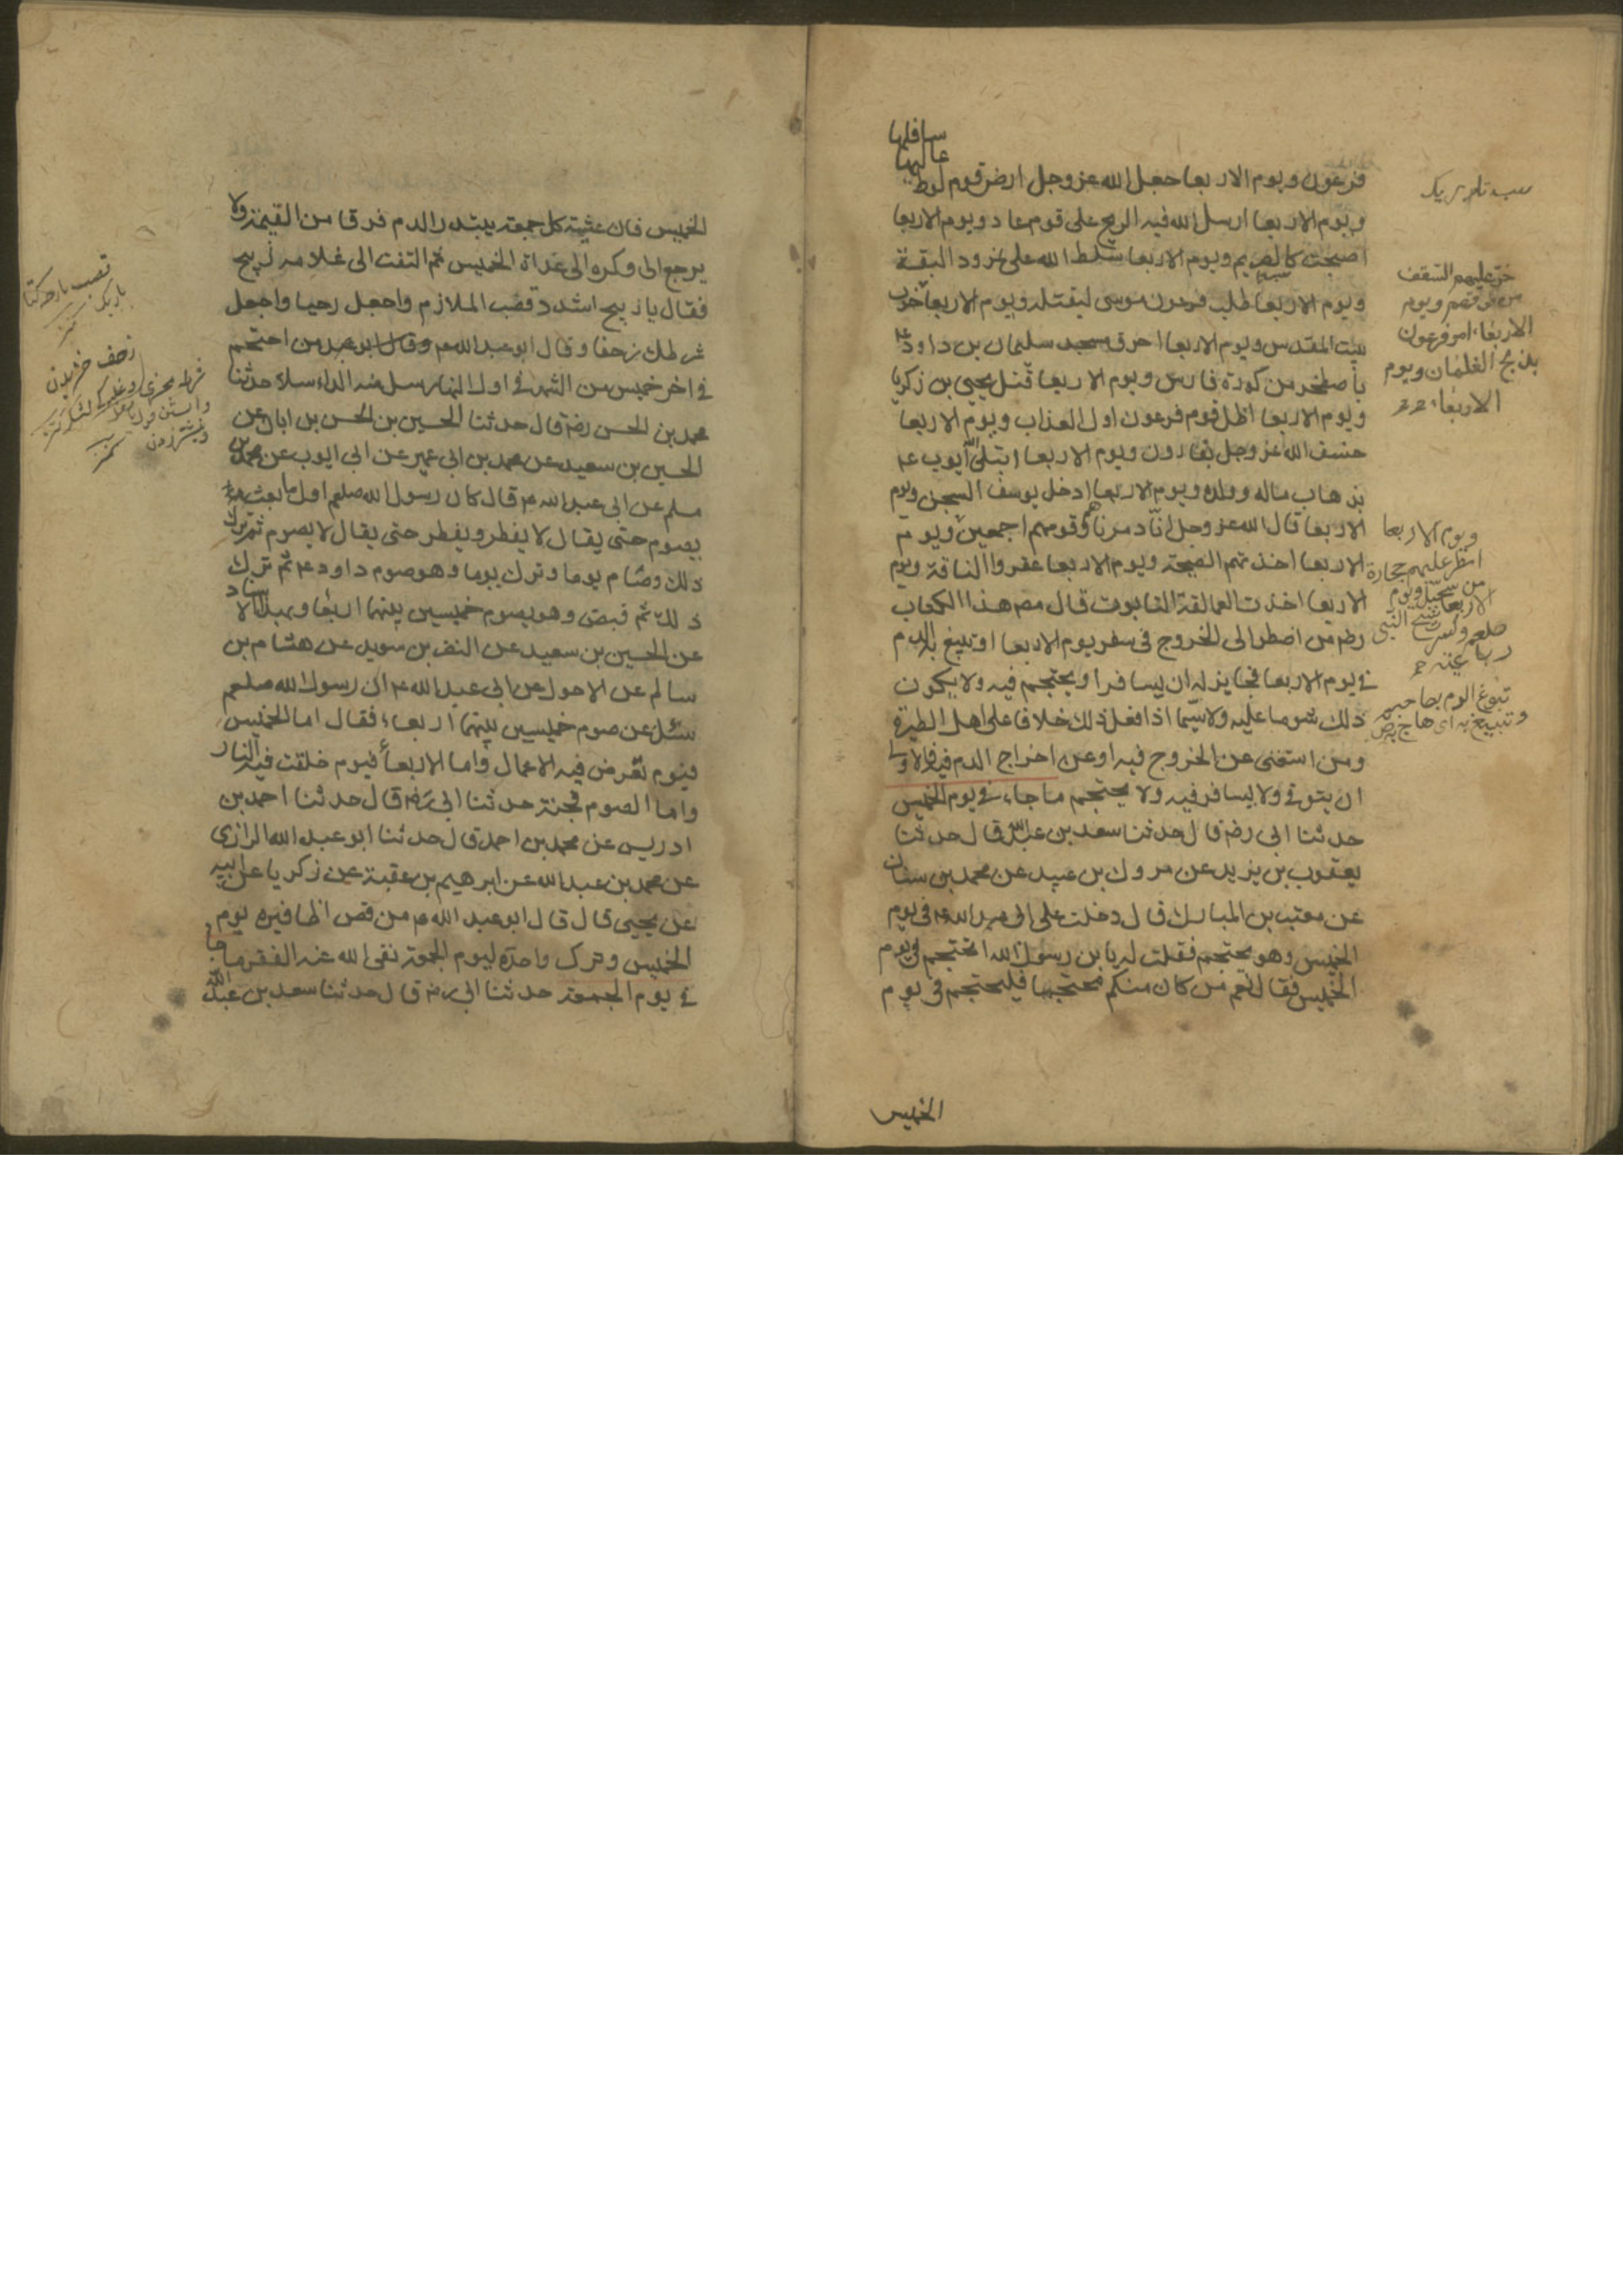 سافلها
عاليها
فرعون ويوم الاربعا جعل الله عز وجل ارض قوم لوط
ويوم الاربعا ارسل الله فيه الريح على قوم عاد ويوم الاربعا
اصبحت كالصريم ويوم الاربعا سلط الله على نمرود البقة
ويوم الاربعا طلب فرعون موسى ليقتله ويوم الاربعا خرب
بيت المقدس ويوم الاربعا احرق مسجد سليمان بن داود ع
باصطخر من كورة فارس ويوم الاربعا قتل يحيى بن زكريا
ويوم الاربعا اظل قوم فرعون اول العذاب ويوم الاربعا
خسف الله عز وجل بقارون ويوم الاربعا ابتلى ايوب ع
بذهاب ماله وولده ويوم الاربعا ادخل يوسف السجن ويوم
الاربعا قال الله عز وجل انا دمرناهم وقومهم اجمعين ويوم
الاربعا اخذتهم الصيحة ويوم الاربعا عقروا الناقة ويوم
الاربعا اخذت العمالقة التابوت قال مص هذا الكتاب
رض من اضطر الى الخروج في سفر يوم الاربعا او تبيغ به الدم
في يوم الاربعا فجايز له ان يسافر او يحتجم فيه ولا يكون
ذلك شوما عليه ولا سيما اذا فعل ذلك خلافا على اهل الطيرة
ومن استغنى عن الخروج فيه او عن اخراج الدم فيه فالاولى
ان يتوقى ولا يسافر فيه ولا يحتجم ما جاء في يوم الخميس
حدثنا ابي رض قال حدثنا سعد بن عبد الله قال حدثنا
يعقوب بن يزيد عن مروك بن عبيد عن محمد بن سنان
عن معتب بن المبارك قال دخلت على ابي عبد الله ع في يوم
الخميس وهو يحتجم فقلت له يا بن رسول الله اتحتجم في يوم
الخميس فقال نعم من كان منكم محتجما فليحتجم في يوم
الخميس
خر عليهم السقف
من فوقهم ويوم
الاربعاء امر فرعون
بذبح الغلمان ويوم
الاربعاء
ويوم الاربعا
امطر عليهم حجارة
من سجيل ويوم
الاربعا شج النبي
صلعم وكسرت
رباعيته
تبوغ الدم بصاحبه
وتبيغ به اى هاج به
الخميس فان عشية كل جمعة يبتدر الدم فرقا من القيمة ولا
يرجع الى وكره الى غداة الخميس ثم التفت الى غلامه زينج
فقال يا زينج اشدد قصب الملازم واجعل رخيا واجعل
شرطك زحفا وقال ابو عبد الله ع وقال ابو عبد من احتجم
في اخر خميس من الشهر في اول النهار سل منه الداء سلا حدثنا
محمد بن الحسن رض قال حدثنا الحسين بن الحسن بن ابان عن
الحسين بن سعيد عن محمد بن ابي عمير عن ابي ايوب عن محمد بن
مسلم عن ابي عبد الله ع قال كان رسول الله صلعم اول ما بعث
يصوم حتى يقال لا يفطر ويفطر حتى يقال لا يصوم ثم ترك
ذلك وصام يوما وترك يوما وهو صوم داود ع ثم ترك
ذلك ثم قبض وهو يصوم خميسين بينهما اربعا وبهذا الاسناد
عن الحسين بن سعيد عن النضر بن سويد عن هشام بن
سالم عن الاحول عن ابي عبد الله ع ان رسول الله صلعم
سئل عن صوم خميسين بينهما اربعاء فقال اما الخميس
فيوم تعرض فيه الاعمال واما الاربعا فيوم خلقت فيه النار
واما الصوم فجنة حدثنا ابي رض قال حدثنا احمد بن
ادريس عن محمد بن احمد قال حدثنا ابو عبد الله الرازى
عن محمد بن عبد الله عن ابرهيم بن عقبة عن زكريا عن ابيه
عن يحيى قال قال ابو عبد الله ع من قص اظافيره يوم
الخميس وترك واحدة ليوم الجمعة نفى الله عنه الفقر ما جا
في يوم الجمعة حدثنا ابي رض قال حدثنا سعد بن عبد الله